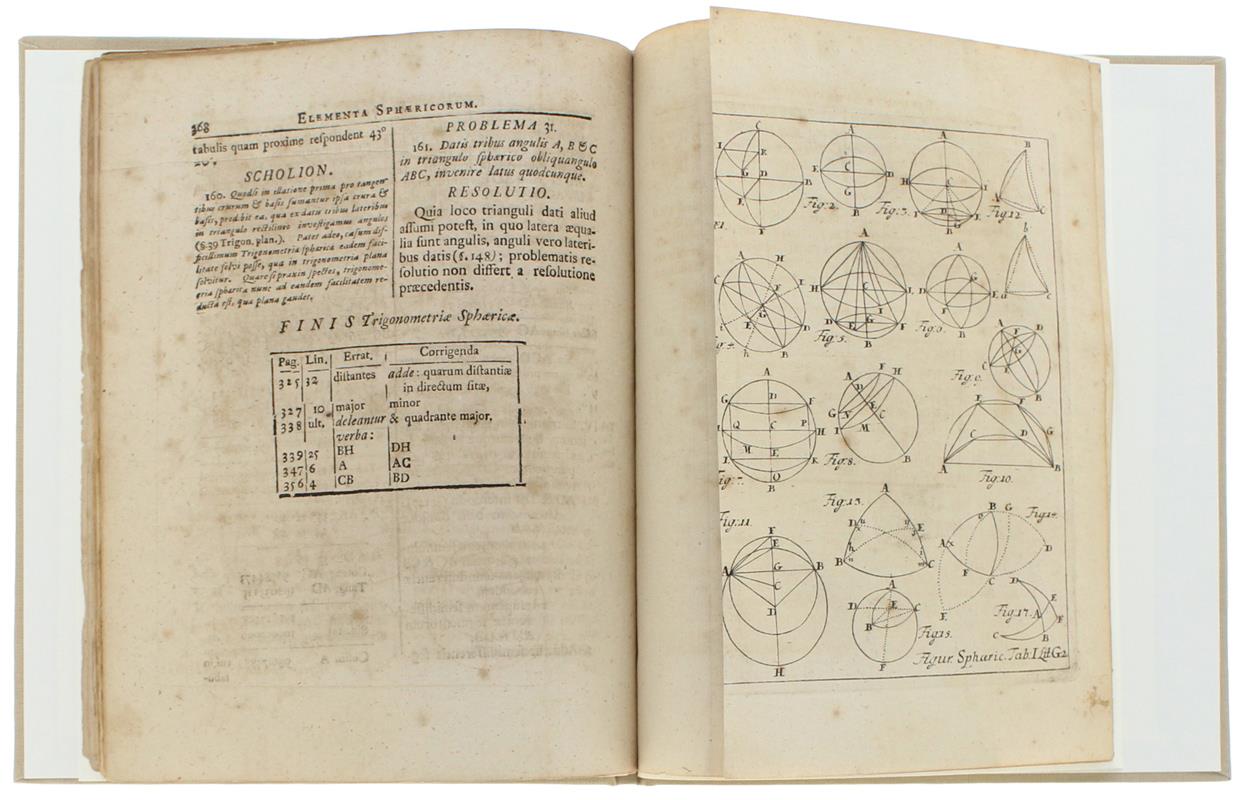 368
ELEMENTA SPHÆRICORUM.
tabulis quam proxime reſpondent 43°
20'.
SCHOLION.
160. Quodſi in illatione prima pro tangen-
tibus crurum & baſis ſumantur ipſa crura &
baſis, prodibit ea, qua ex datis tribus lateribus
in triangulo rectilineo inveſtigamus angulos
(§.39 Trigon. plan.). Patet adeo, caſum dif-
ficillimum Trigonometriæ ſphæricæ eadem faci-
litate ſolvi poſſe, qua in trigonometria plana
ſolvitur. Quare ſi praxin ſpectes, trigonome-
tria ſphærica nunc ad eandem facilitatem re-
ducta eſt, qua plana gaudet.
PROBLEMA 31.
161. Datis tribus angulis A, B & C
in triangulo ſphærico obliquangulo
ABC, invenire latus quodcunque.
RESOLUTIO.
Quia loco trianguli dati aliud
aſſumi poteſt, in quo latera æqua-
lia ſunt angulis, anguli vero lateri-
bus datis (§. 148); problematis re-
ſolutio non differt a reſolutione
præcedentis.
FINIS Trigonometriæ Sphæricæ.
Pag. Lin. Errat. Corrigenda
325 32 diſtantes adde: quarum diſtantiæ
in directum ſitæ,
327 10 major minor
338 ult. deleantur & quadrante major.
verba:
339 25 BH DH
347 6 A AC
356 4 CB BD
C
I K
G D B
E
F
A
C D
G
B
Fig:2.
A
H I
C
D
E
B
Fig:3.
B
A C
Fig:12
H
A
F I
G
E D
h B
Fig:4.
A
H C I
I
D E G F
B
Fig:5.
A
G
E D
B
Fig:6.
b
a c
A
F D
G
C E
B
Fig:9.
A
G D F
Q C P
H
I M E K
O
B
Fig:7.
F H
A
D
G E
N C
I M
B
Fig:8.
E F
G
C D
A B
Fig:10.
Fig:11.
F
E
A G B
C
D
H
Fig:13.
A
D E
B C
B G Fig:14.
A D
F C
E
A
D E C
B
F
Fig:15.
D E
Fig:17. A F
C B
Figur. Sphæric. Tab. I Litt G2